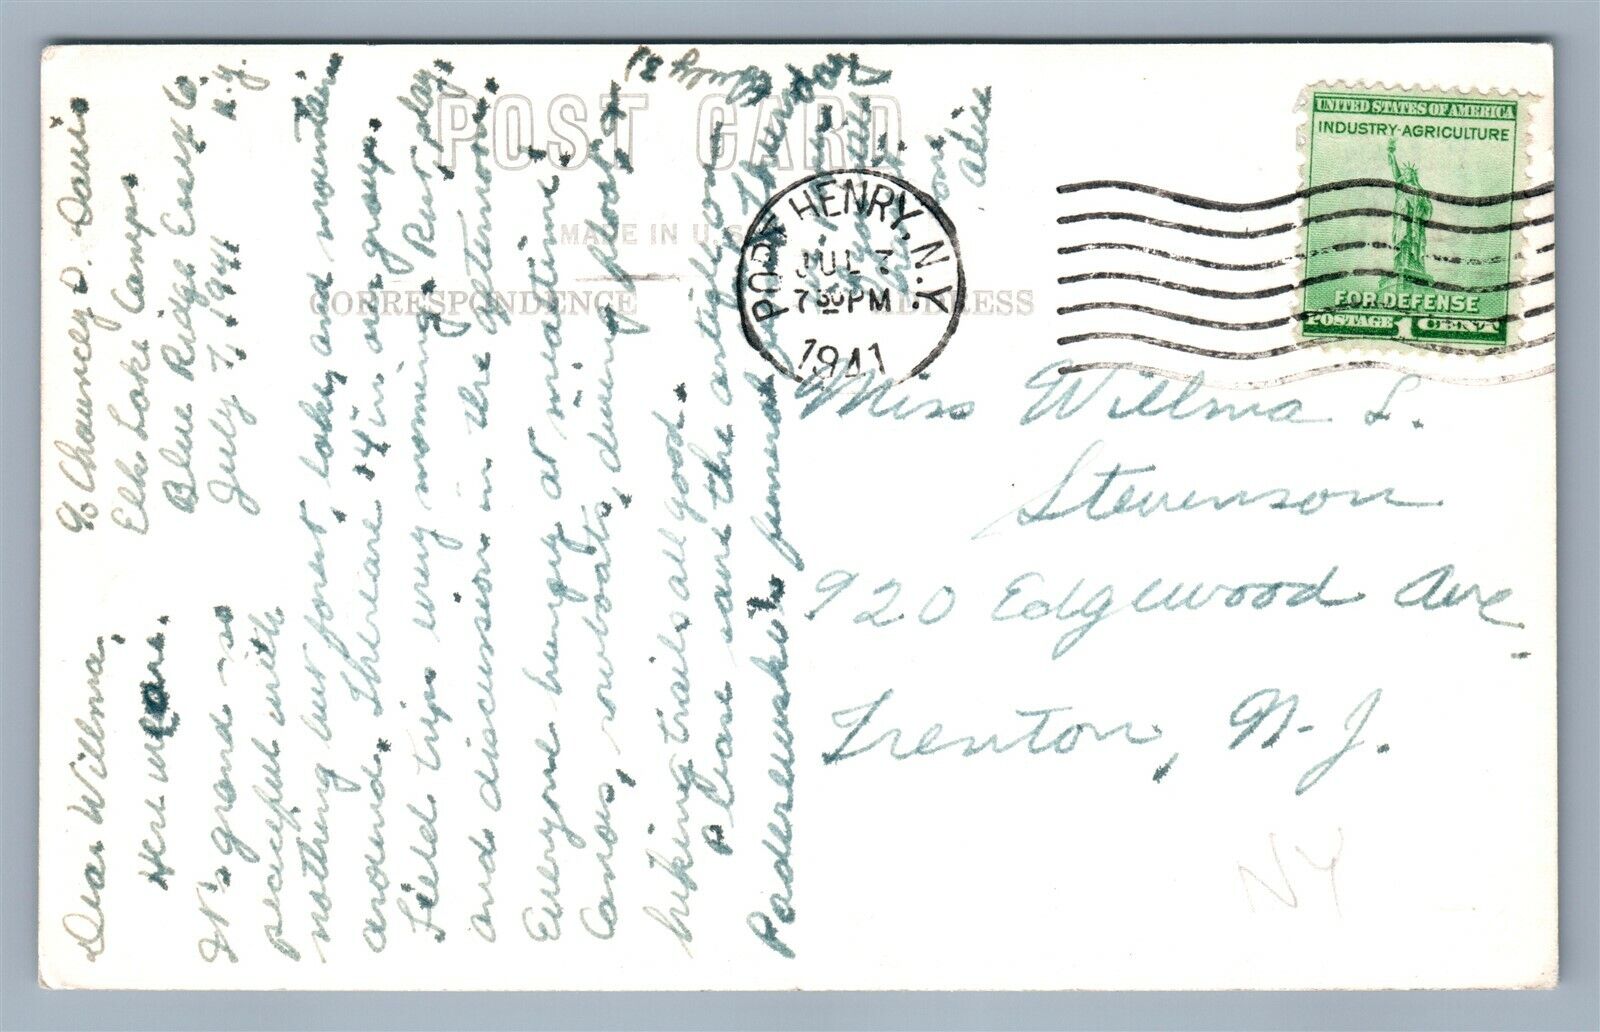 POST CARD
MADE IN U.S.
CORRESPONDENCE
ADDRESS
PORT HENRY, N.Y.
JUL 7
7 30 PM
1941
UNITED STATES OF AMERICA
INDUSTRY-AGRICULTURE
FOR DEFENSE
POSTAGE 1 CENT
Miss Wilma L.
Stevenson
920 Edgewood Ave.
Trenton, N.J.
NY
℅ Chauncey D. Davis
Elk Lake Camps
Blue Ridge Essex Co.
N.Y.
July 7, 1941
Dear Wilma,
Here we are.
It's grand so
peaceful with
nothing but forest, lake, and mountain
around. There are 14 in our group.
Field trips every morning. Rest play
and discussion in the afternoon.
Everyone hungry at mealtime.
Canoes, rowboats, diving float &
hiking trails all good.
Please save the article on
Paderewski's funeral in
July 3
Love,
Alice